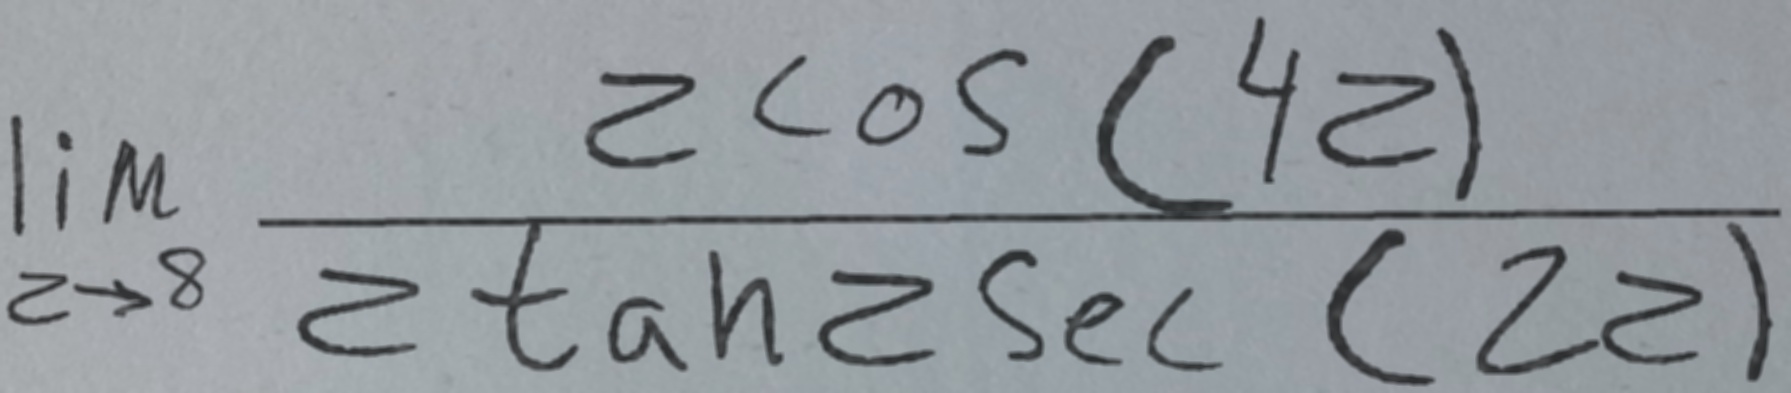 lim z→8 z cos (4z) / z tan z sec (2z)